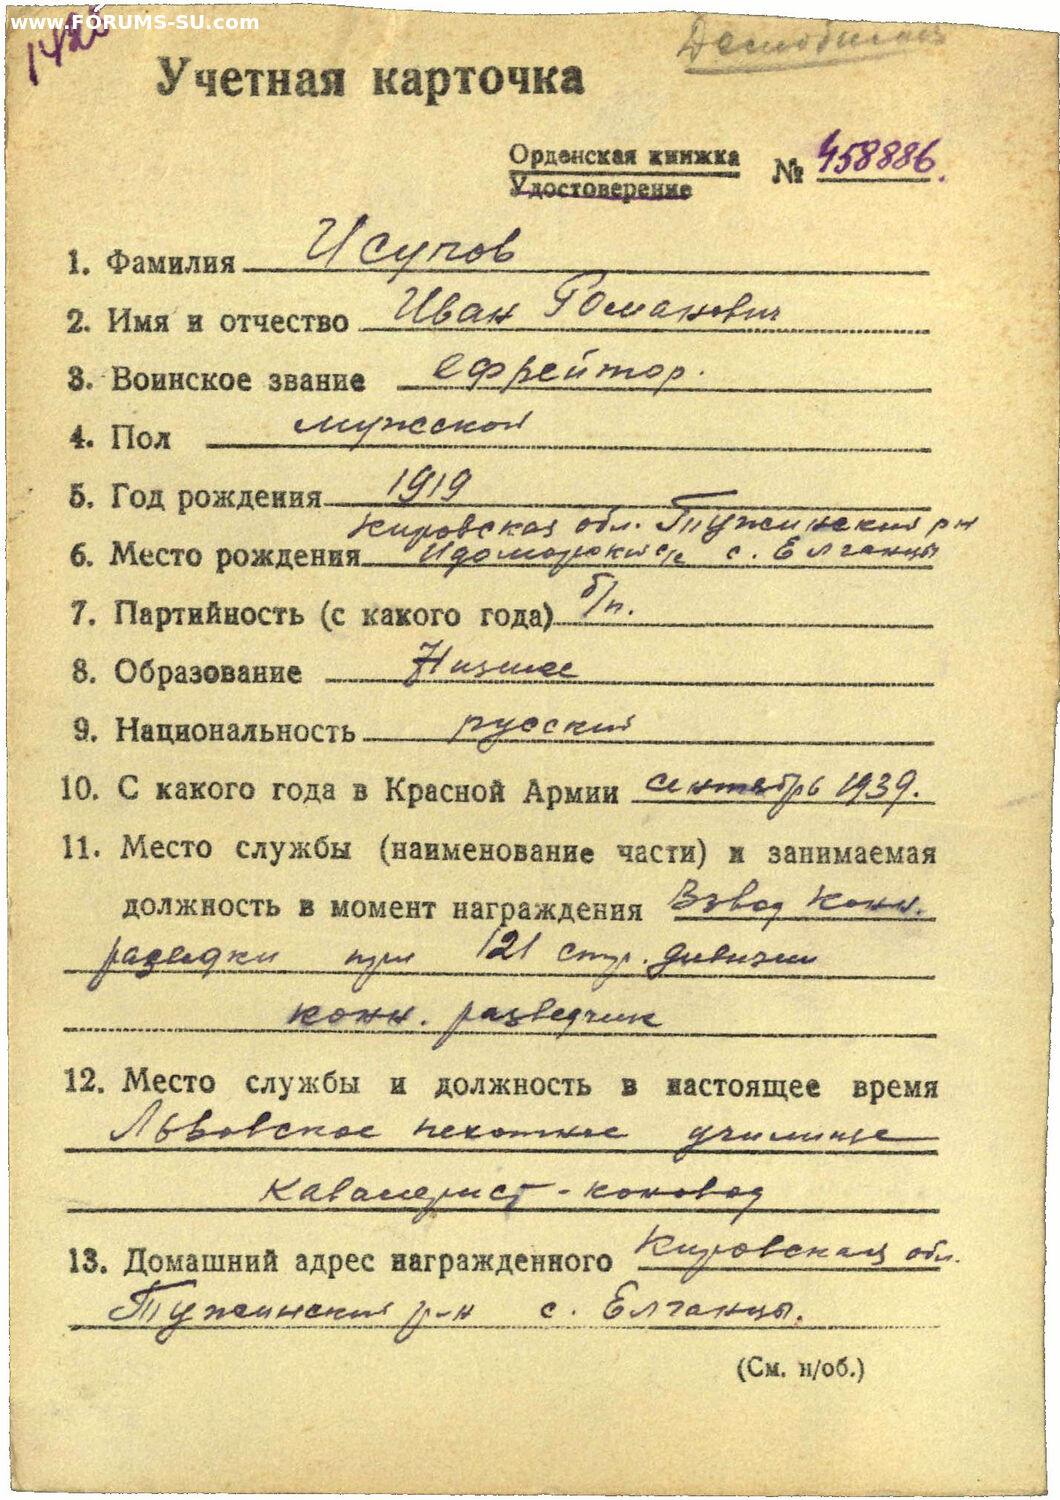 www.FORUMS-SU.com
Учетная карточка
Орденская книжка
Удостоверение
№ 458886.
1. Фамилия Исупов
2. Имя и отчество Иван Романович
3. Воинское звание ефрейтор.
4. Пол мужской
5. Год рождения 1919
Кировская обл. Тужинский р-н
6. Место рождения с/с с. Елганцы
7. Партийность (с какого года) б/п.
8. Образование Низшее
9. Национальность русский
10. С какого года в Красной Армии сентябрь 1939.
11. Место службы (наименование части) и занимаемая
должность в момент награждения Взвод конн.
разведки при 121 стр. дивизии
конн. разведчик
12. Место службы и должность в настоящее время
Львовское пехотное училище
Кавалерист - коновод
13. Домашний адрес награжденного Кировская обл.
Тужинский р-н с. Елганцы.
(См. н/об.)